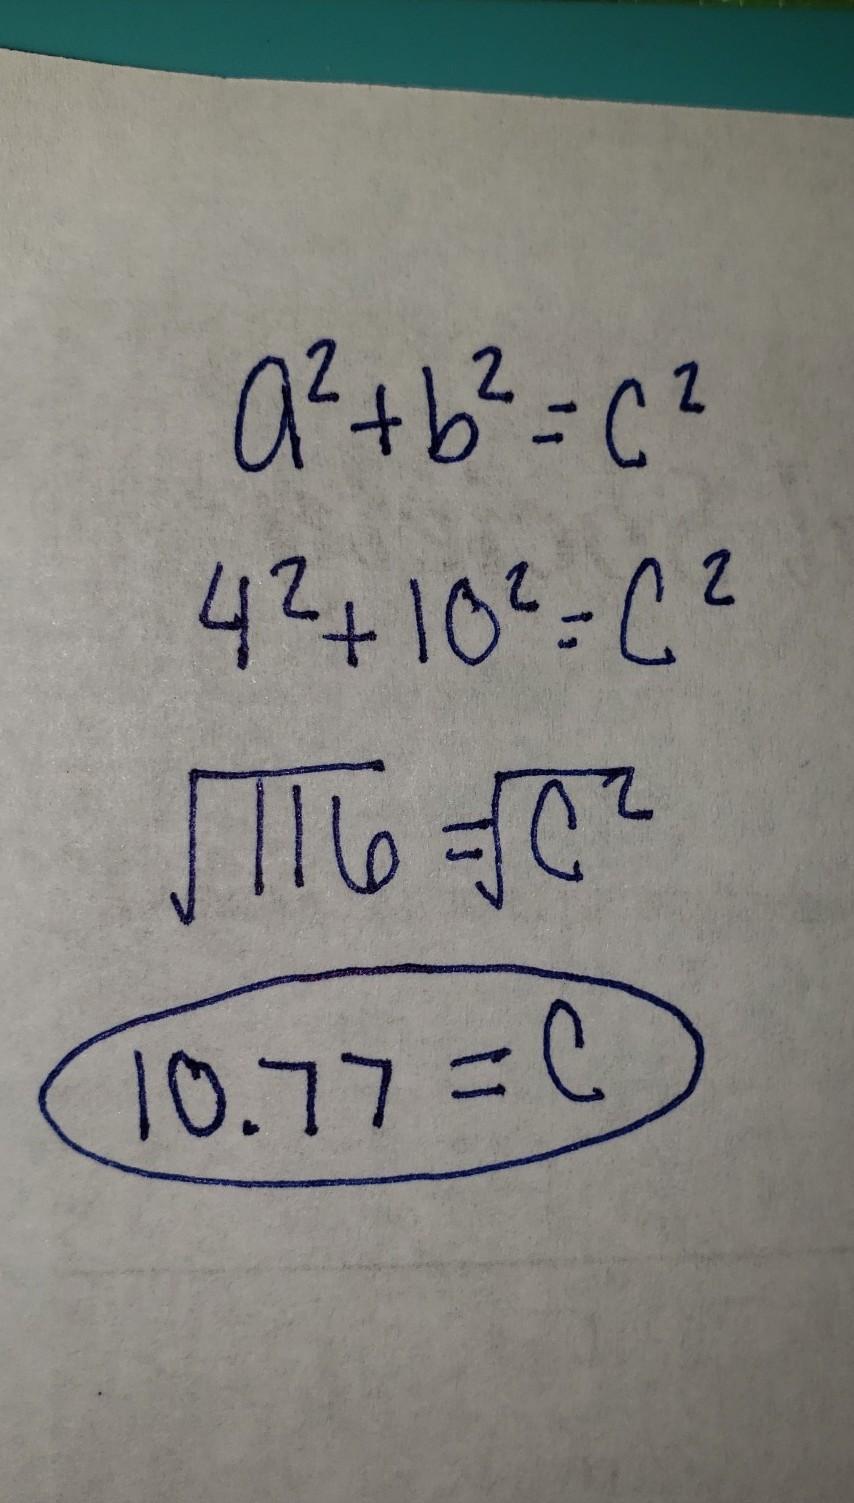 a² + b² = c²
4² + 10² = C²
√116 = √C²
10.77 = C